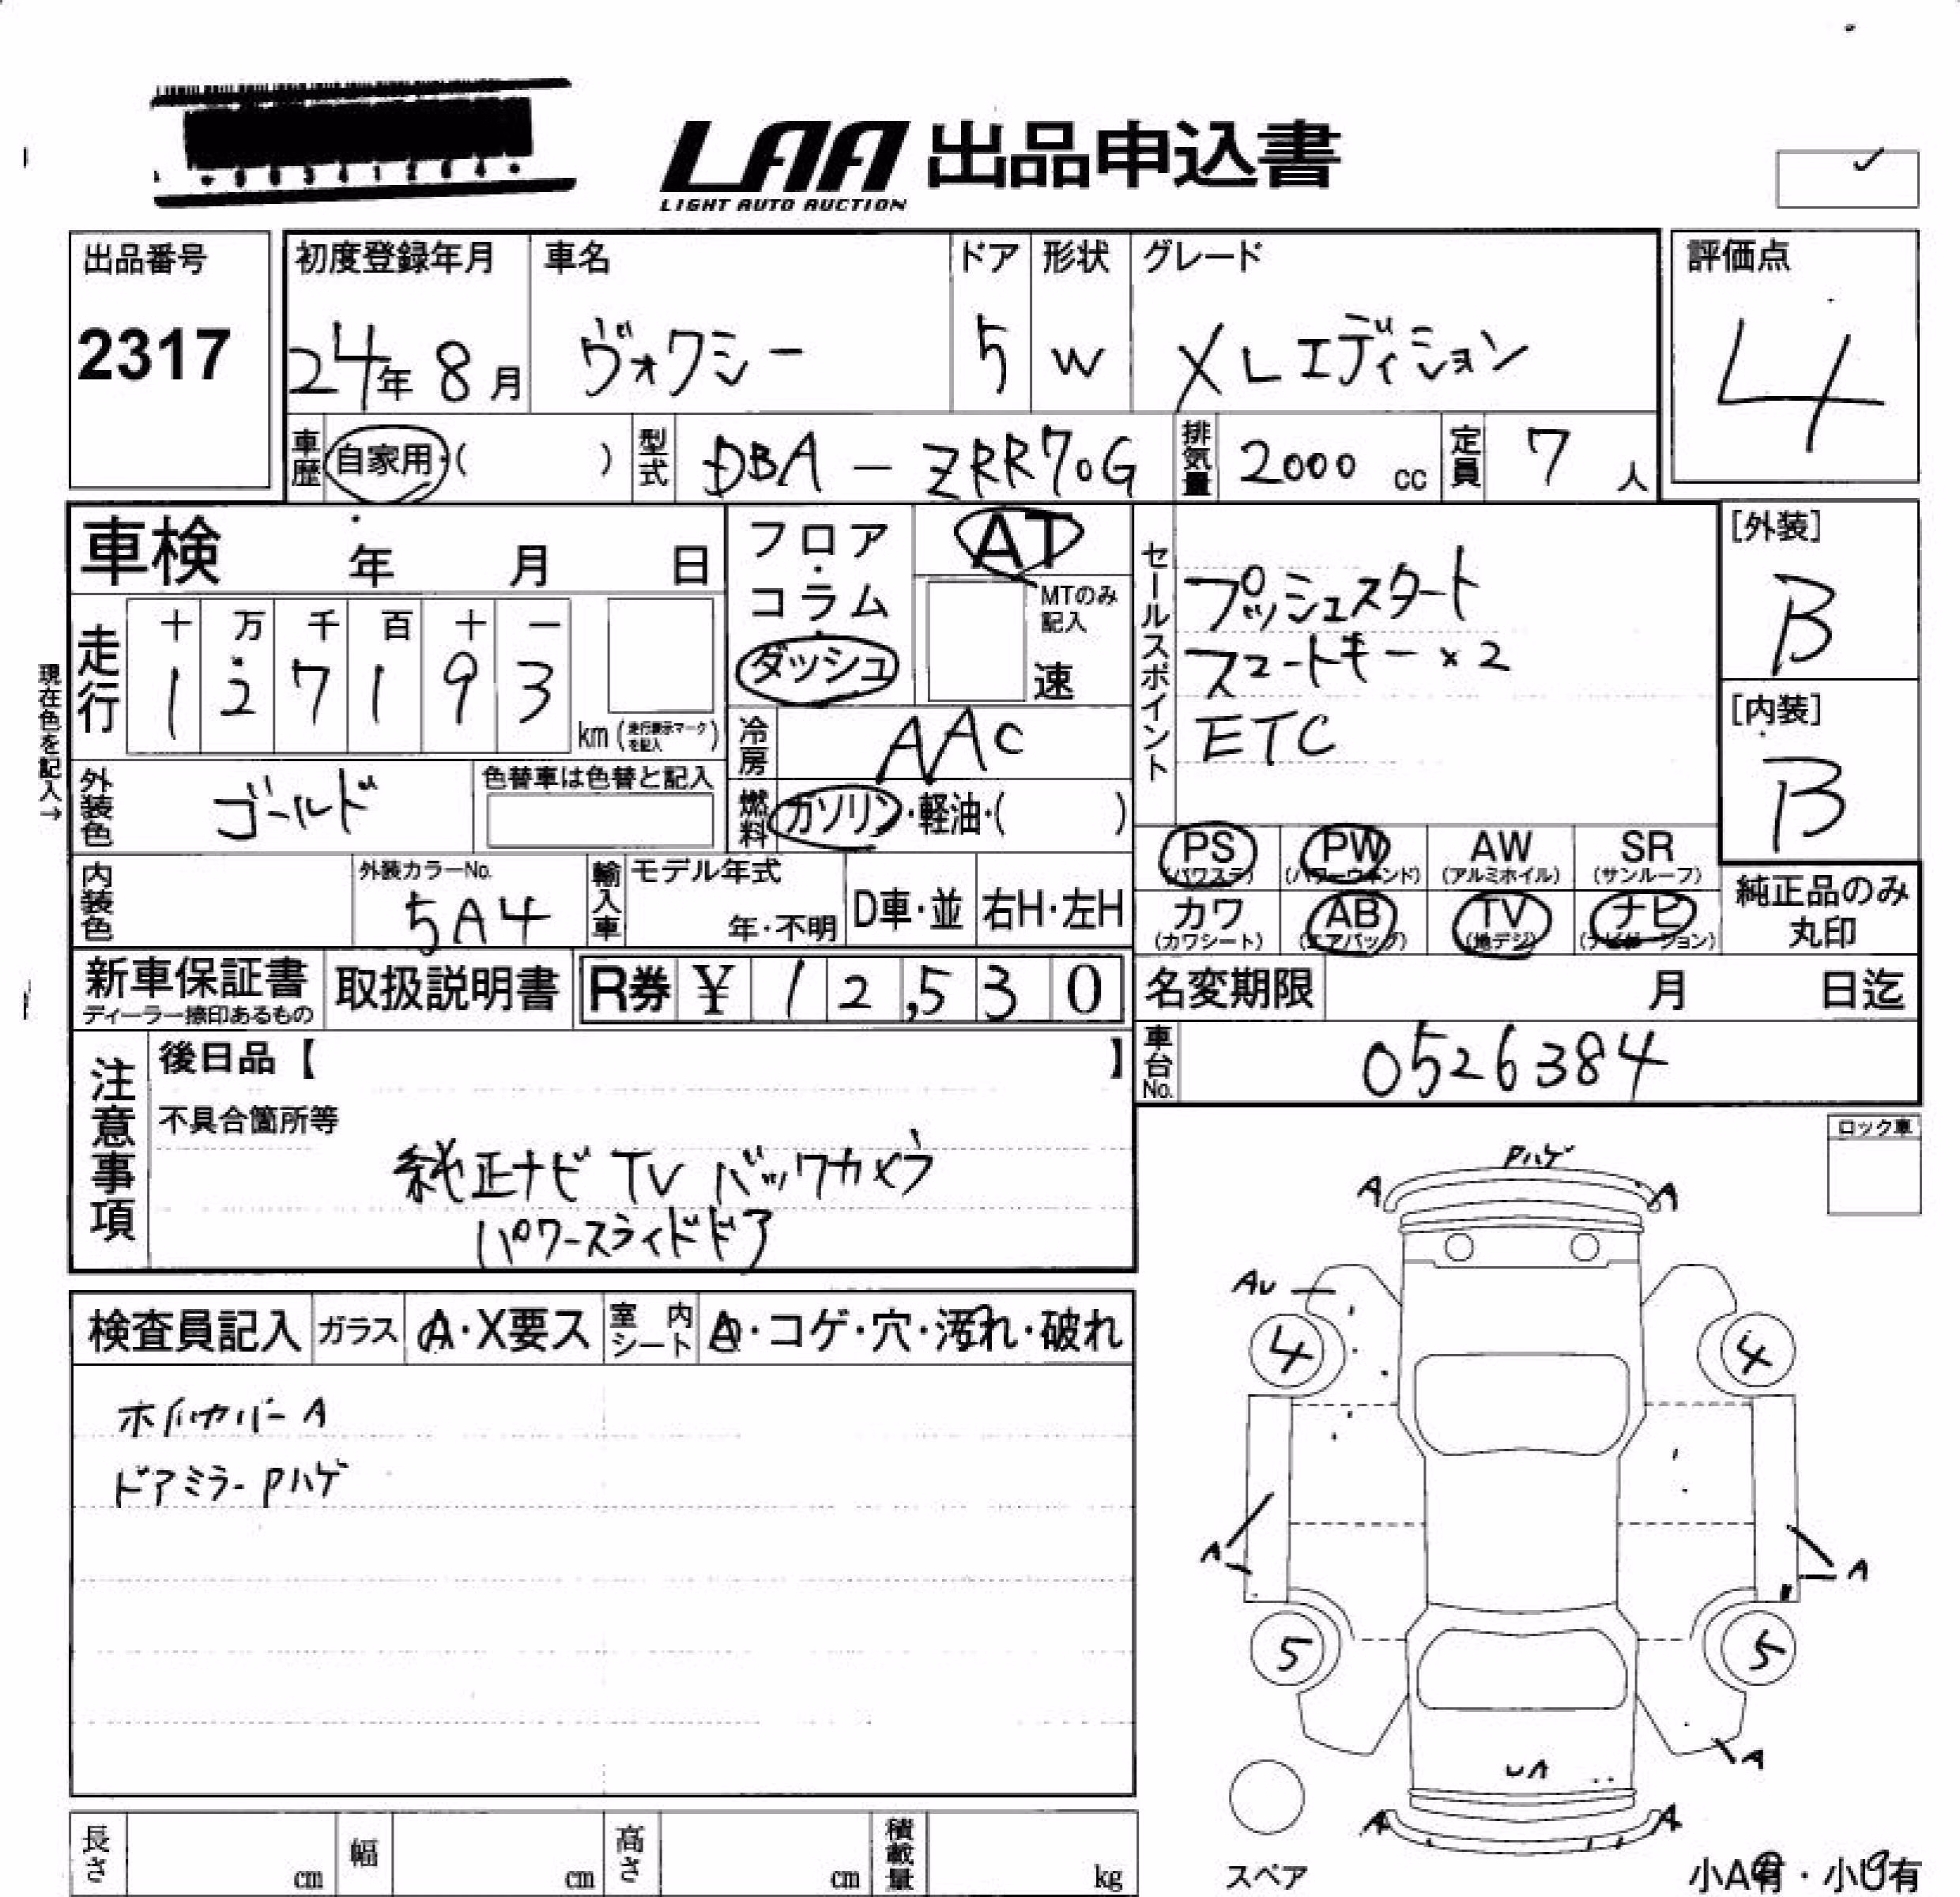 LAA 出品申込書
LIGHT AUTO AUCTION
出品番号
2317
初度登録年月
24年 8月
車名
ヴォクシー
ドア
5
形状
W
グレード
X Lエディション
評価点
4
車歴 自家用・( )
型式 DBA - ZRR70G
排気量 2000 cc
定員 7 人
車検 年 月 日
現在色を記入→
走行
十 万 千 百 十 一
1 2 7 1 9 3
km (走行表示マークを記入)
フロア・コラム・ダッシュ
AT
MTのみ記入
速
冷房 AAC
燃料 ガソリン・軽油・( )
セールスポイント
プッシュスタート
スマートキー×2
ETC
[外装]
B
[内装]
B
外装色 ゴールド
色替車は色替と記入
内装色
外装カラーNo.
5A4
輸入車
モデル年式
年・不明
D車・並
右H・左H
PS (パワステ)
PW (パワーウィンド)
AW (アルミホイル)
SR (サンルーフ)
カワ (カワシート)
AB (エアバッグ)
TV (地デジ)
ナビ (ナビゲーション)
純正品のみ
丸印
新車保証書
ディーラー捺印あるもの
取扱説明書
R券 ¥ 12,530
名変期限 月 日迄
車台No. 0526384
注意事項
後日品【 】
不具合箇所等
純正ナビ TV バックカメラ
パワースライドドア
ロック車
検査員記入
ガラス A・X要ス
室内シート A・コゲ・穴・汚れ・破れ
ホイルカバー A
ドアミラー Pハゲ
Pハゲ
A A
AU
4 4
A A
5 5
A
UA
A A
スペア
小A有・小U有
長さ cm
幅 cm
高さ cm
積載量 kg